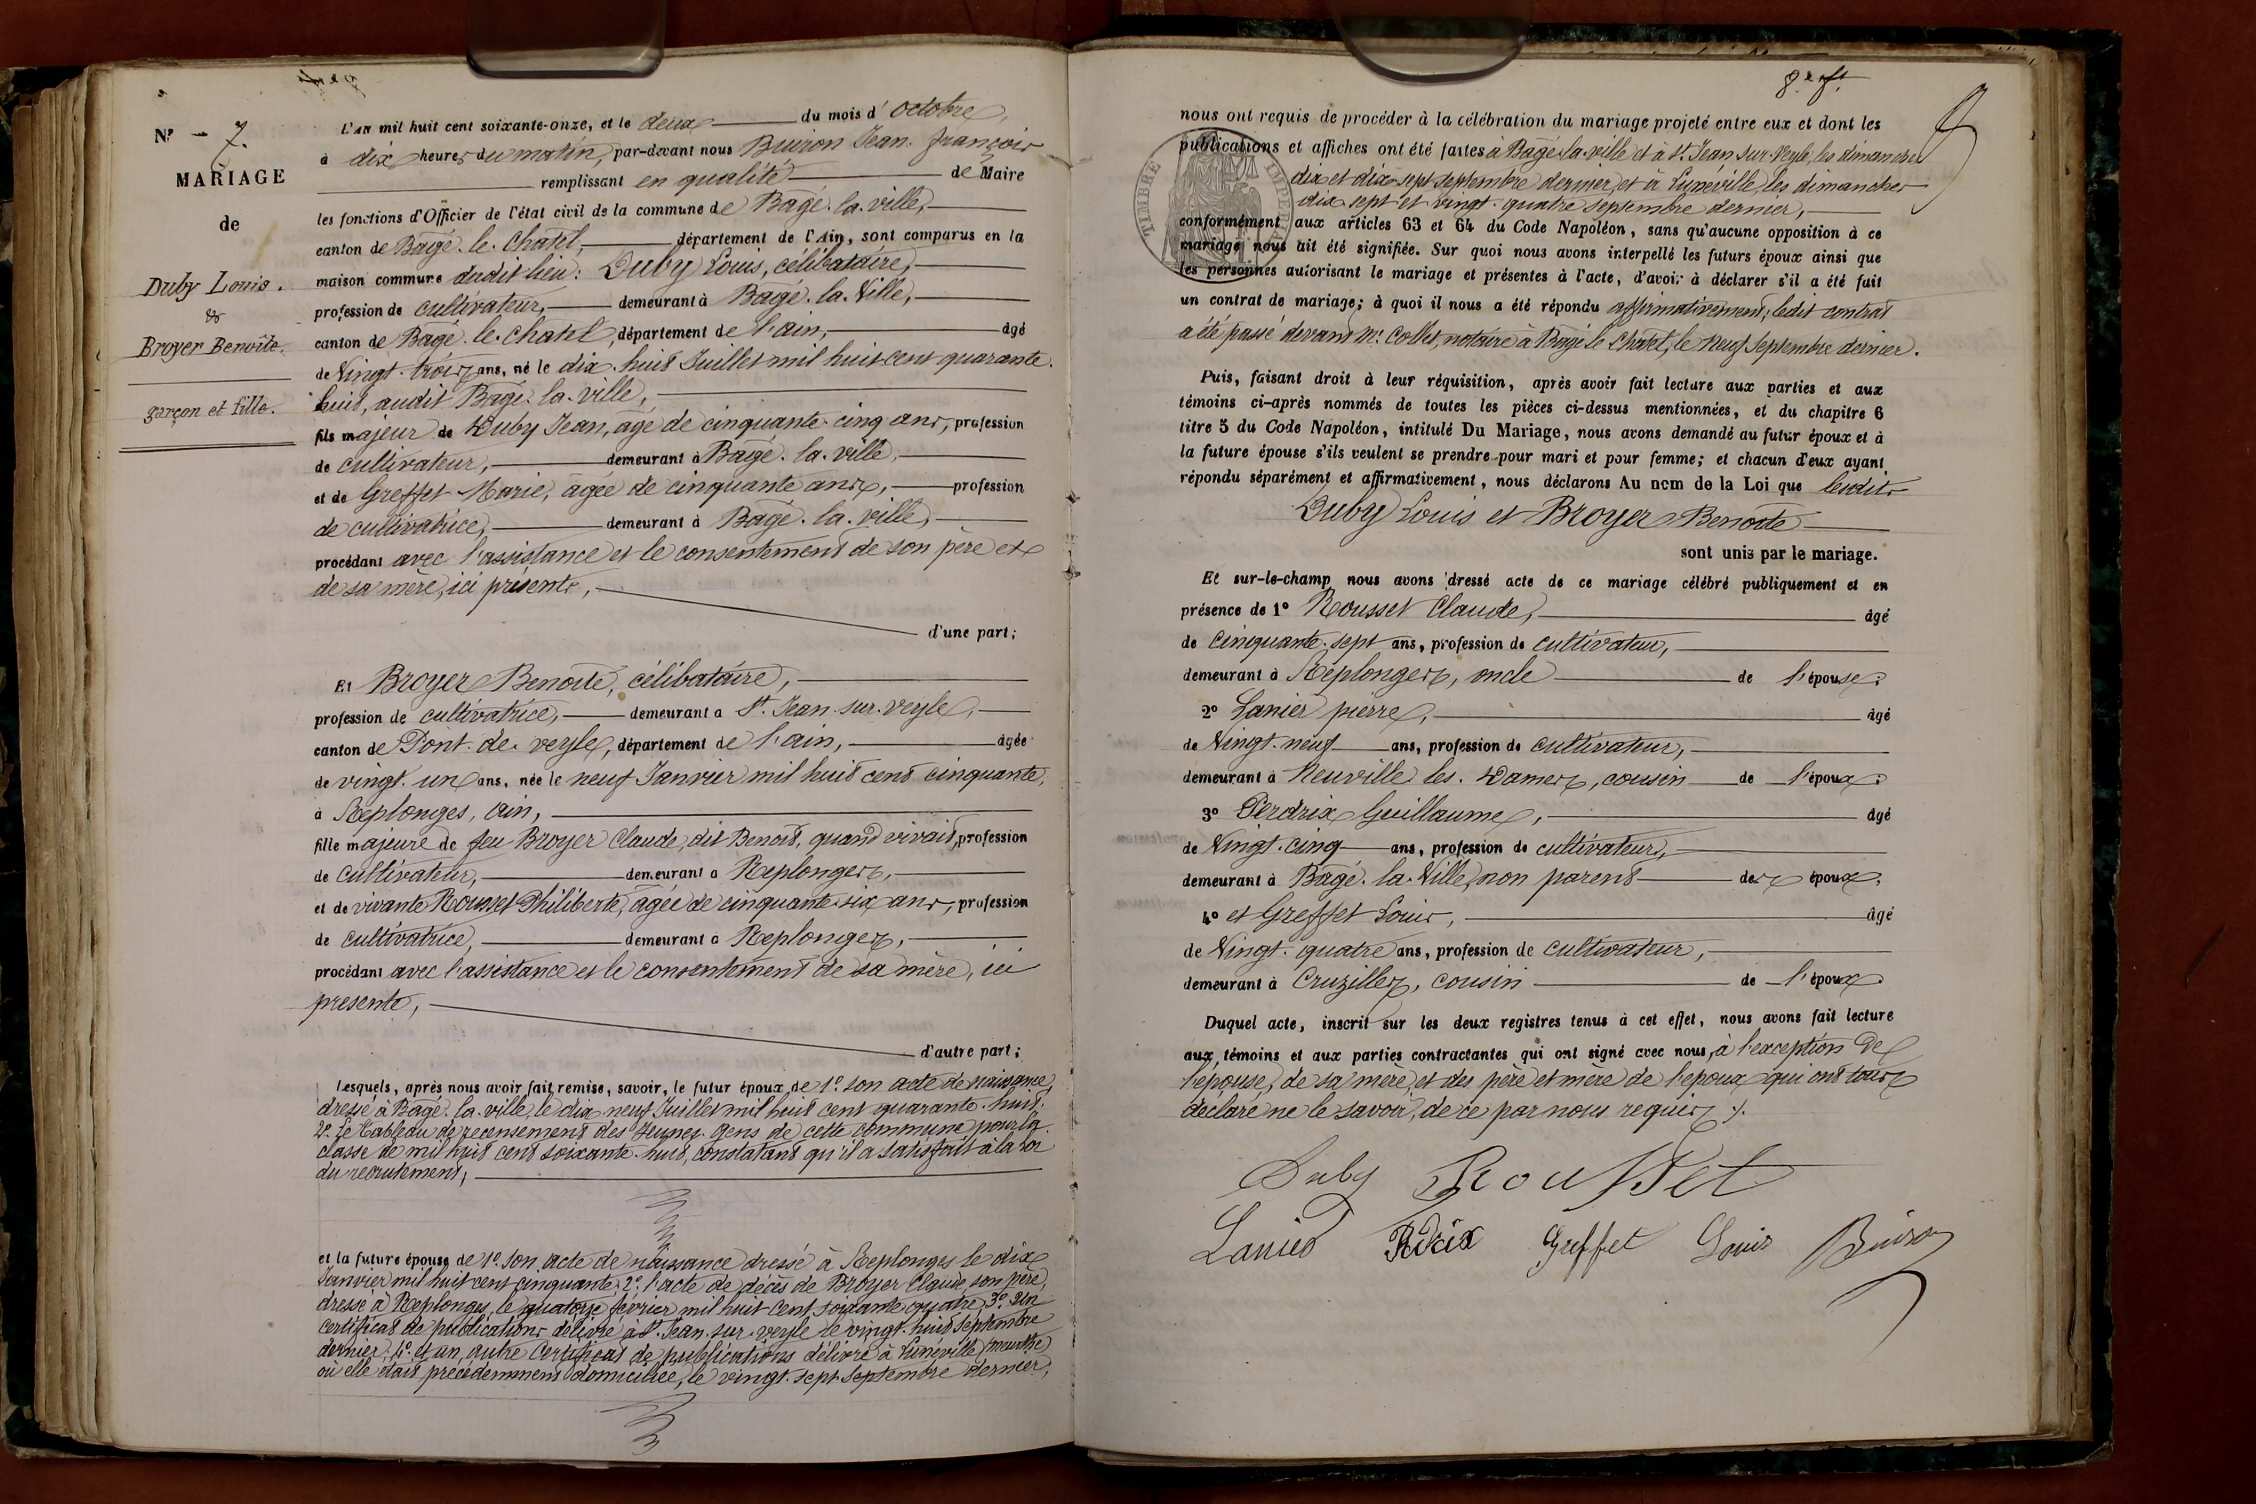 N° 7.
MARIAGE
de
Duby Louis.
&
Broyer Benoîte.
garçon et fille.
L'an mil huit cent soixante-onze, et le deux du mois d'octobre,
à dix heures du matin, par-devant nous Buiron Jean François
remplissant en qualité de Maire
les fonctions d'Officier de l'état civil de la commune de Bagé-la-ville,
canton de Bagé-le-Chatel, département de l'Ain, sont comparus en la
maison commune dudit lieu: Duby Louis, célibataire,
profession de cultivateur, demeurant à Bagé-la-Ville,
canton de Bagé-le-Chatel, département de l'ain, âgé
de Vingt-trois ans, né le dix-huit Juillet mil huit cent quarante-
huit, audit Bagé-la-ville,
fils majeur de Duby Jean, âgé de cinquante-cinq ans, profession
de cultivateur, demeurant à Bagé-la-ville,
et de Greffet Marie, âgée de cinquante ans, profession
de cultivatrice, demeurant à Bagé-la-ville,
procédant avec l'assistance et le consentement de son père et
de sa mère, ici présents,
d'une part;
Et Broyer Benoîte, célibataire,
profession de cultivatrice, demeurant a St. Jean-sur-veyle,
canton de Pont-de-veyle, département de l'ain, âgée
de vingt-un ans, née le neuf Janvier mil huit cent cinquante,
à Replonges, ain,
fille majeure de feu Broyer Claude, dit Benoit, quand vivait, profession
de cultivateur, demeurant a Replonges,
et de vivante Rousset Philiberte, âgée de cinquante-six ans, profession
de cultivatrice, demeurant a Replonges,
procédant avec l'assistance et le consentement de sa mère, ici
presente,
d'autre part;
Lesquels, après nous avoir fait remise, savoir, le futur époux de 1° son acte de naissance,
dressé à Bagé-la-ville, le dix-neuf Juillet mil huit cent quarante-huit;
2° Le tableau de recensement des Jeunes-gens de cette commune pour la
classe de mil huit cent soixante-huit, constatant qu'il a satisfait à la loi
du recrutement,
et la future épouse de 1° son acte de naissance dressé à Replonges le dix
Janvier mil huit cent cinquante; 2° l'acte de décès de Broyer Claude, son père,
dressé à Replonges, le quatorze février mil huit cent soixante-quatre; 3° Un
certificat de publications délivré à St. Jean-sur-veyle le vingt-huit septembre
dernier; 4° et un autre certificat de publications délivré à Lunéville (meurthe)
où elle était précédemment domiciliée, le vingt-sept septembre dernier,
8e ft.
nous ont requis de procéder à la célébration du mariage projeté entre eux et dont les
publications et affiches ont été faites à Bagé-la-ville et à St. Jean-sur-Veyle, les dimanches
dix et dix-sept septembre dernier, et à Lunéville les dimanches
dix-sept et vingt-quatre septembre dernier,
conformément aux articles 63 et 64 du Code Napoléon, sans qu'aucune opposition à ce
mariage nous ait été signifiée. Sur quoi nous avons interpellé les futurs époux ainsi que
les personnes autorisant le mariage et présentes à l'acte, d'avoir à déclarer s'il a été fait
un contrat de mariage; à quoi il nous a été répondu affirmativement, ledit contrat
a été passé devant Me. Collet, notaire à Bagé le Chatel, le neuf septembre dernier.
Puis, faisant droit à leur réquisition, après avoir fait lecture aux parties et aux
témoins ci-après nommés de toutes les pièces ci-dessus mentionnées, et du chapitre 6
titre 5 du Code Napoléon, intitulé Du Mariage, nous avons demandé au futur époux et à
la future épouse s'ils veulent se prendre pour mari et pour femme; et chacun d'eux ayant
répondu séparément et affirmativement, nous déclarons Au nom de la Loi que lesdits
Duby Louis et Broyer Benoîte
sont unis par le mariage.
Et sur-le-champ nous avons dressé acte de ce mariage célébré publiquement et en
présence de 1° Rousset Claude, âgé
de cinquante-sept ans, profession de cultivateur,
demeurant à Replonges, oncle de l'épouse;
2° Lanier pierre, âgé
de Vingt-neuf ans, profession de cultivateur,
demeurant à Neuville-les-Dames, cousin de l'époux;
3° Perdrix Guillaume, âgé
de Vingt-cinq ans, profession de cultivateur,
demeurant à Bagé-la-Ville, non parent des époux,
4° et Greffet Louis, âgé
de Vingt-quatre ans, profession de cultivateur,
demeurant à Cruzilles, cousin de l'époux.
Duquel acte, inscrit sur les deux registres tenus à cet effet, nous avons fait lecture
aux témoins et aux parties contractantes qui ont signé avec nous, à l'exception de
l'épouse, de sa mère, et des père et mère de l'époux qui ont tous
déclaré ne le savoir, de ce par nous requis.
Duby Rousset
Lanier Perdrix Greffet Louis Buiron
TIMBRE IMPERIAL